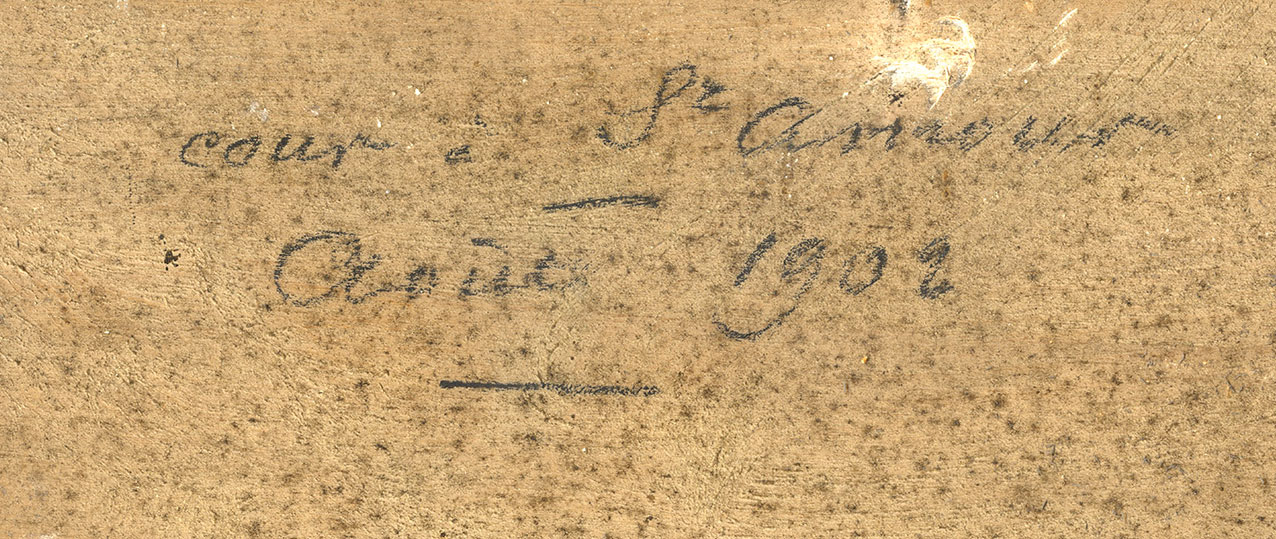 cour à St Amour
Août 1902